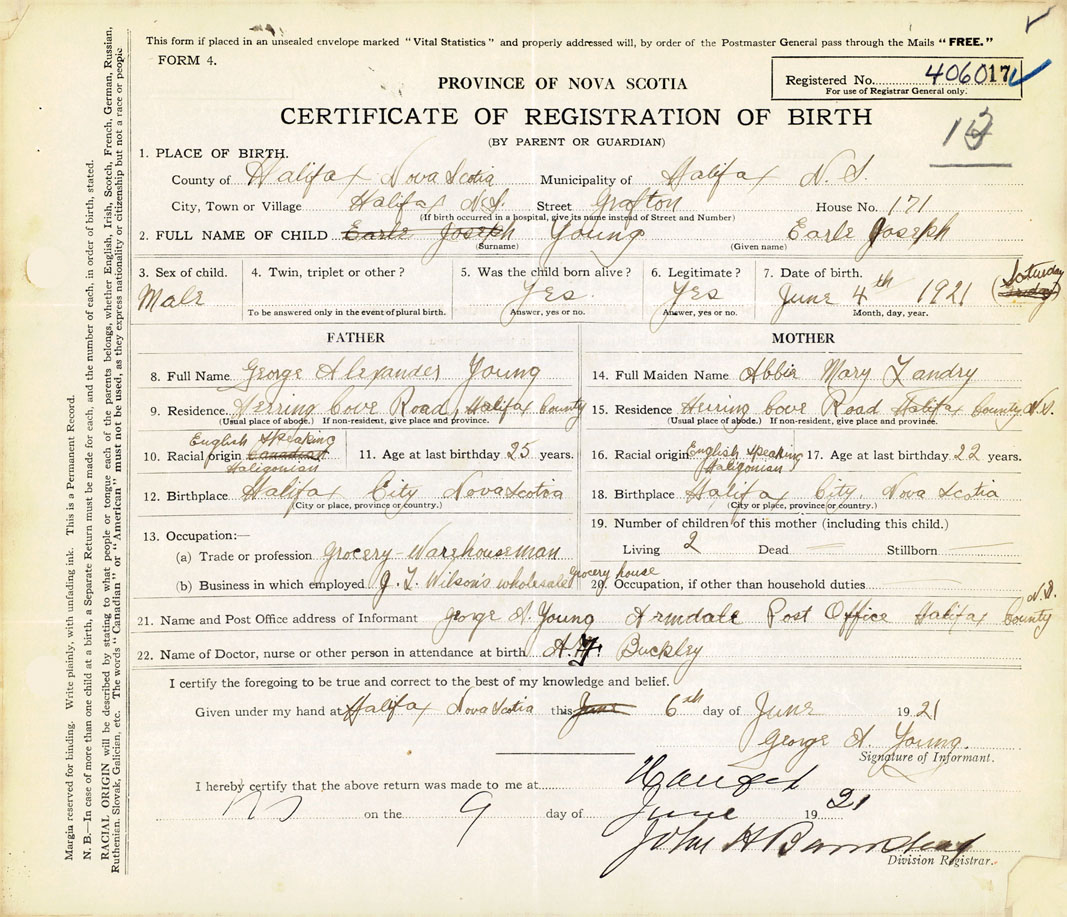 This form if placed in an unsealed envelope marked "Vital Statistics" and properly addressed will, by order of the Postmaster General pass through the Mails "FREE."
FORM 4.
PROVINCE OF NOVA SCOTIA
Registered No. 406017
For use of Registrar General only.
CERTIFICATE OF REGISTRATION OF BIRTH
(BY PARENT OR GUARDIAN)
1. PLACE OF BIRTH.
County of Halifax Nova Scotia Municipality of Halifax N.S.
City, Town or Village Halifax N.S. Street Grafton House No. 171
(If birth occurred in a hospital, give its name instead of Street and Number)
2. FULL NAME OF CHILD Earle Joseph Young Earle Joseph
(Surname) (Given name)
3. Sex of child. 4. Twin, triplet or other? 5. Was the child born alive? 6. Legitimate? 7. Date of birth.
Male Yes. Yes June 4th 1921 (Saturday
To be answered only in the event of plural birth. Answer, yes or no. Answer, yes or no. Month, day, year.
FATHER MOTHER
8. Full Name George Alexander Young 14. Full Maiden Name Abbie Mary Landry
9. Residence Herring Cove Road, Halifax County 15. Residence Herring Cove Road Halifax County N.S.
(Usual place of abode.) If non-resident, give place and province. (Usual place of abode.) If non-resident, give place and province.
10. Racial origin English Speaking Canadian Haligonian 11. Age at last birthday 25 years. 16. Racial origin English Speaking Haligonian 17. Age at last birthday 22 years.
12. Birthplace Halifax City Nova Scotia 18. Birthplace Halifax City. Nova Scotia
(City or place, province or country.) (City or place, province or country.)
13. Occupation:— 19. Number of children of this mother (including this child.)
(a) Trade or profession Grocery-Warehouseman Living 2 Dead — Stillborn —
(b) Business in which employed J. L. Wilson's wholesale grocery house 20. Occupation, if other than household duties
21. Name and Post Office address of Informant George A. Young Armdale Post Office Halifax County N.S.
22. Name of Doctor, nurse or other person in attendance at birth Buckley
I certify the foregoing to be true and correct to the best of my knowledge and belief.
Given under my hand at Halifax Nova Scotia this June 6th day of June 1921
George A. Young.
Signature of Informant.
I hereby certify that the above return was made to me at Halifax
NS on the 9 day of June 1921
John H Barnstead
Division Registrar.
Margin reserved for binding. Write plainly, with unfading ink. This is a Permanent Record.
N. B.—In case of more than one child at a birth, a Separate Return must be made for each, and the number of each, in order of birth, stated.
RACIAL ORIGIN will be described by stating to what people or tongue each of the parents belongs, whether English, Irish, Scotch, French, German, Russian,
Ruthenian, Slovak, Galician, etc. The words "Canadian" or "American" must not be used, as they express nationality or citizenship but not a race or people